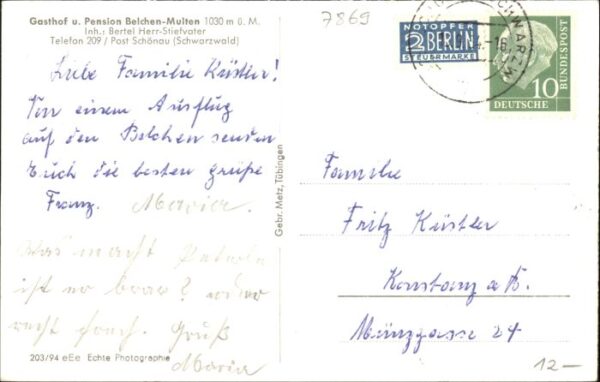 Gasthof u. Pension Belchen-Multen 1030 m ü. M.
Inh.: Bertel Herr-Stiefvater
Telefon 209 / Post Schönau (Schwarzwald)
7869
Liebe Familie Küstler!
Von einem Ausflug
auf den Belchen senden
Euch die besten Grüße
Franz. Maria.
Was macht
ist er brav? oder
recht frech. Gruß
Maria
203/94 eEe Echte Photographie
Gebr. Metz, Tübingen
NOTOPFER
2 BERLIN
STEUERMARKE
SCHWARZW
10
DEUTSCHE
BUNDESPOST
Familie
Fritz Küstler
Konstanz a. B.
Münzgasse 24
12.-